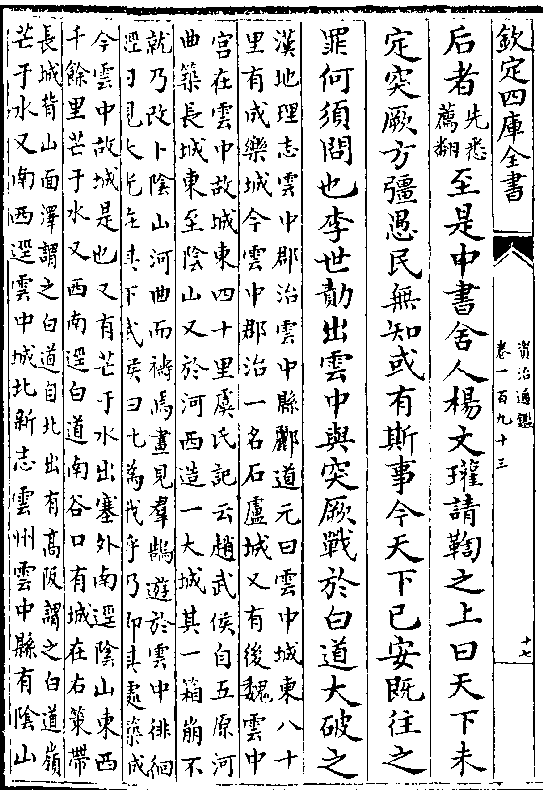 欽定四庫全書
資治通鑑
卷一百九十三
十七
后者先悉薦翻至是中書舍人楊文瓘請鞫之上曰天下未
定突厥方彊愚民無知或有斯事今天下已安既往之
罪何須問也李世勣出雲中與突厥戰於白道大破之
漢地理志雲中郡治雲中縣酈道元曰雲中城東八十
里有成樂城今雲中郡治一名石盧城又有後魏雲中
宫在雲中故城東四十里虞氏記云趙武侯自五原河
曲築長城東至陰山又於河西造一大城其一箱崩不
就乃改卜陰山河曲而禱焉晝見羣鵠遊於雲中徘徊
經日見大光在其下武侯曰此為我乎乃即其處築城
今雲中故城是也又有芒于水出塞外南逕陰山東西
千餘里芒于水又西南逕白道南谷口有城在右策帶
長城背山面澤謂之白道自北出有高阪謂之白道嶺
芒于水又南西逕雲中城北新志雲州雲中縣有陰山